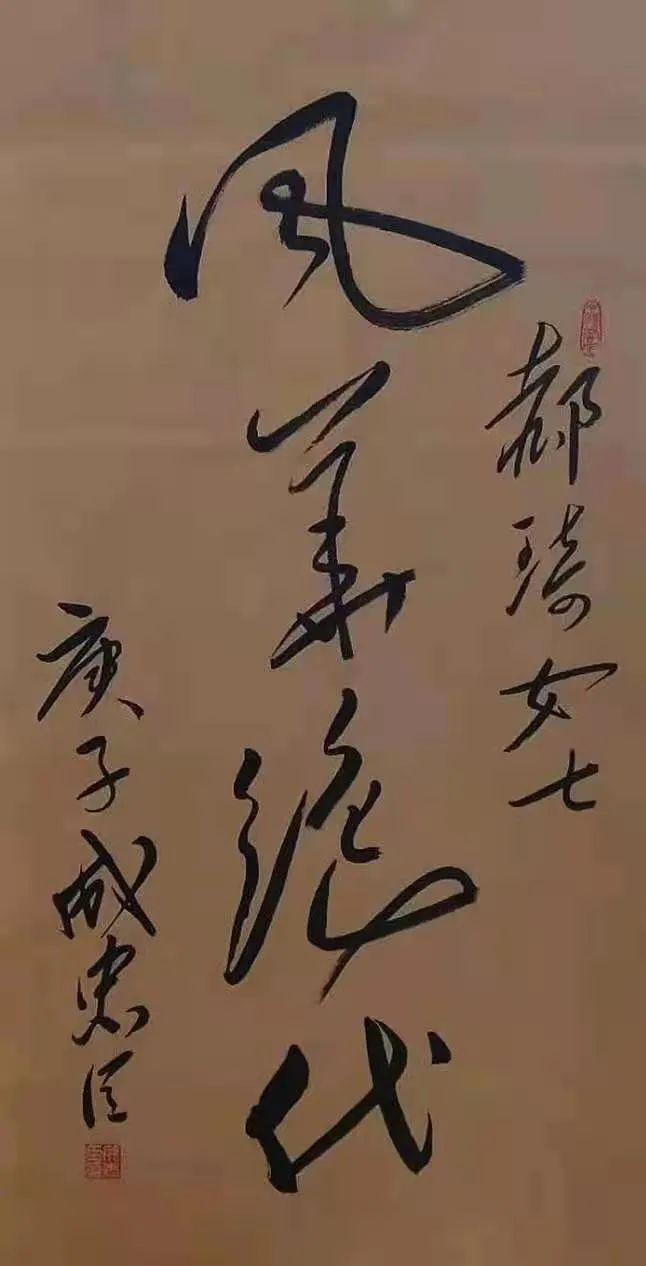 郝琦女士
风华绝代
庚子成忠臣